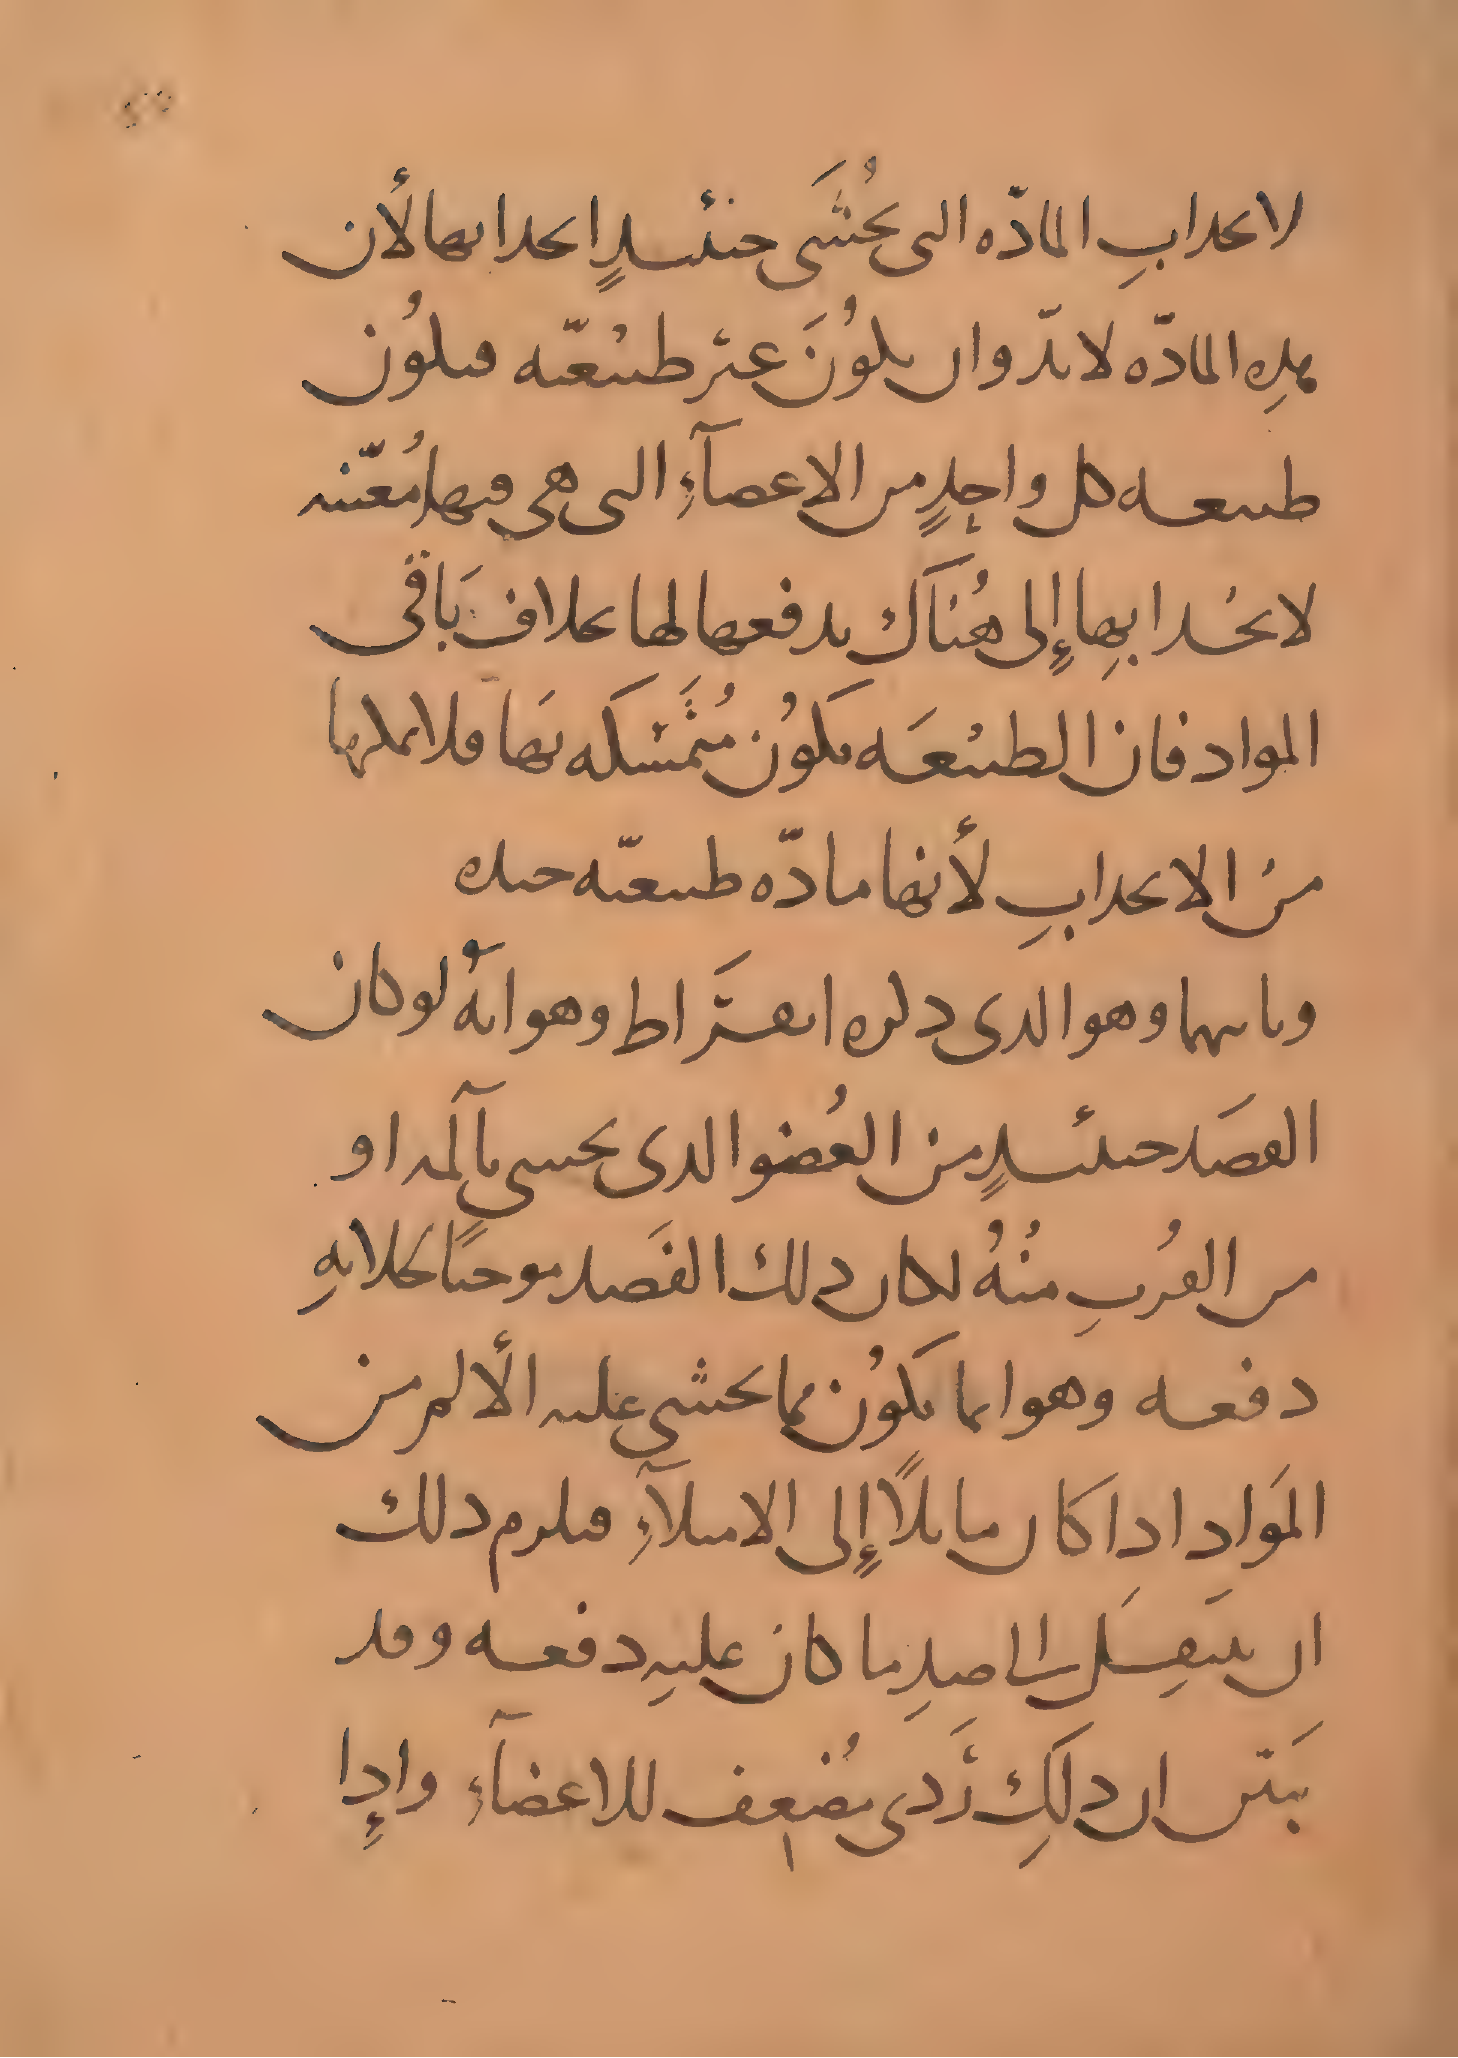 لانجذاب المادّه التى يُخْشَى حينئذٍ انجذابها لأن
هذِه المادّه لا بدّ وان يكُونَ غير طبيعيّه فيكُون
طبيعه كل واحِدٍ من الاعضآءِ التى هى فيها مُعيّنه
لانجُذابِها إِلى هُنَاكَ بدفعها لها بخلاف بَاقى
المواد فان الطبيعَه يَكوُن مُتَمَسّكَه بهَا فلا يمكنها
منُ الانجذابِ لأنها مادّه طبيعيّه جيده
وثانيهما وهو الذى ذكره ابقرَاط وهو انهُ لو كان
الفصَد حينئذٍ من العُضو الذى يحس بآلمه او
من القُربِ منْهُ لكان ذلك الفَصد موجبًا لجلابهِ
دفعه وهو انما يَكوُن مما يخشى عليه الألم من
المَواد اذا كَان مايلًا إِلى الامتلآءِ فيلزم ذلك
ان ينتَقِل الى ضدِ ما كان عليهِ دفعه وقد
بَيّن ان ذَلكِ رَدى مُضعِف للاعضآءِ واذِا